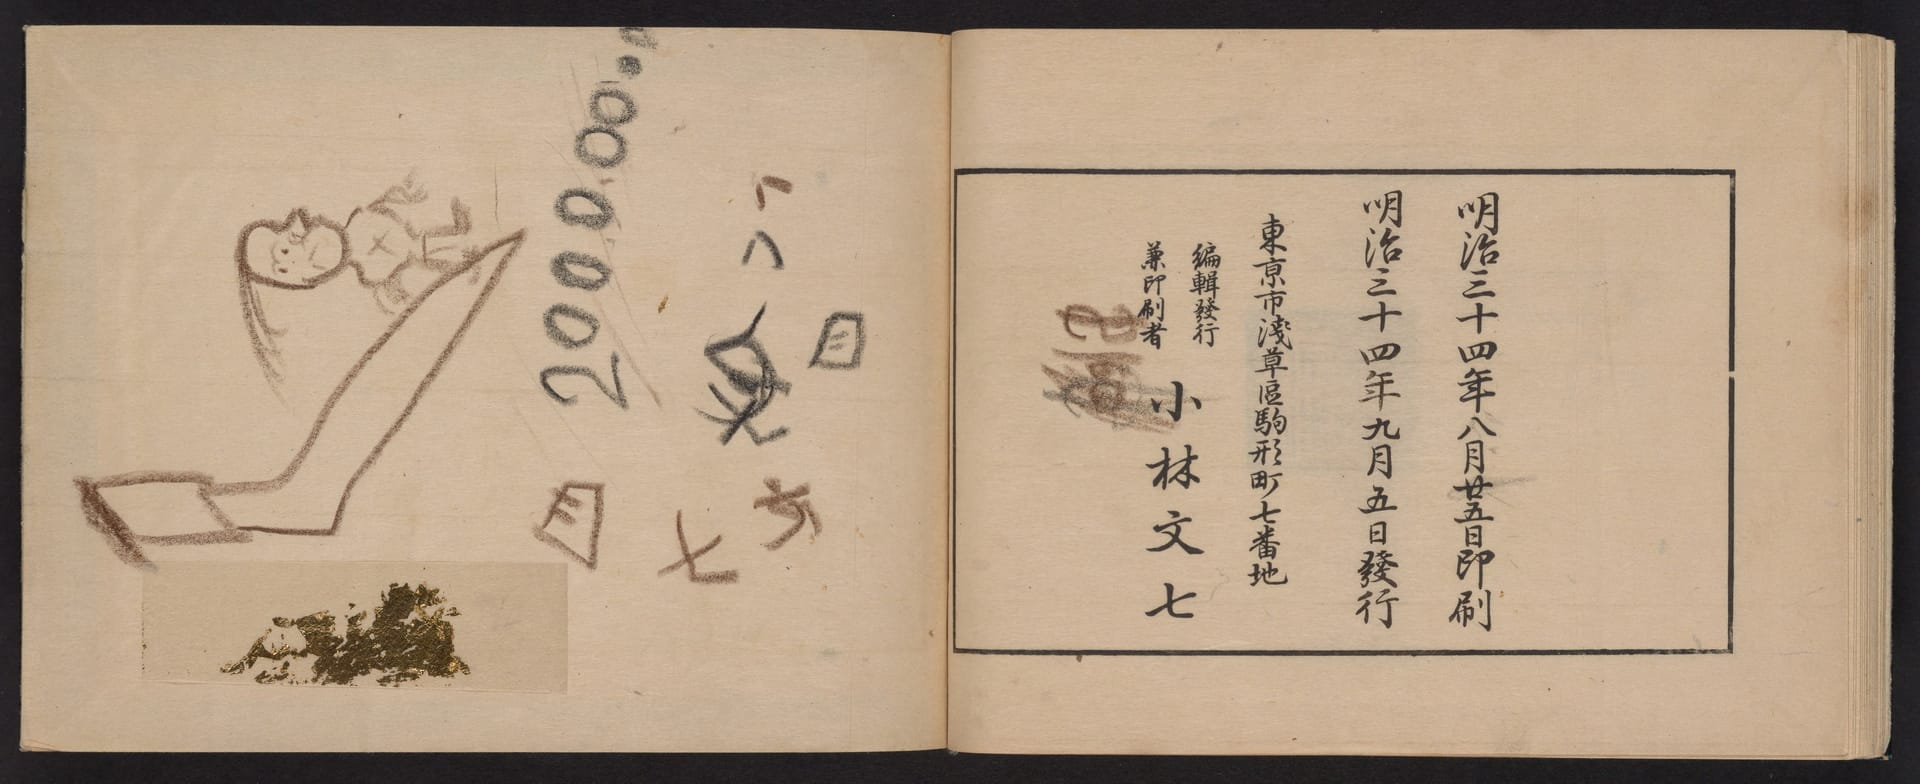 明治三十四年八月廿五日印刷
明治三十四年九月五日發行
東京市淺草區駒形町七番地
編輯發行
兼印刷者
小林文七
目
七
目
2000000.